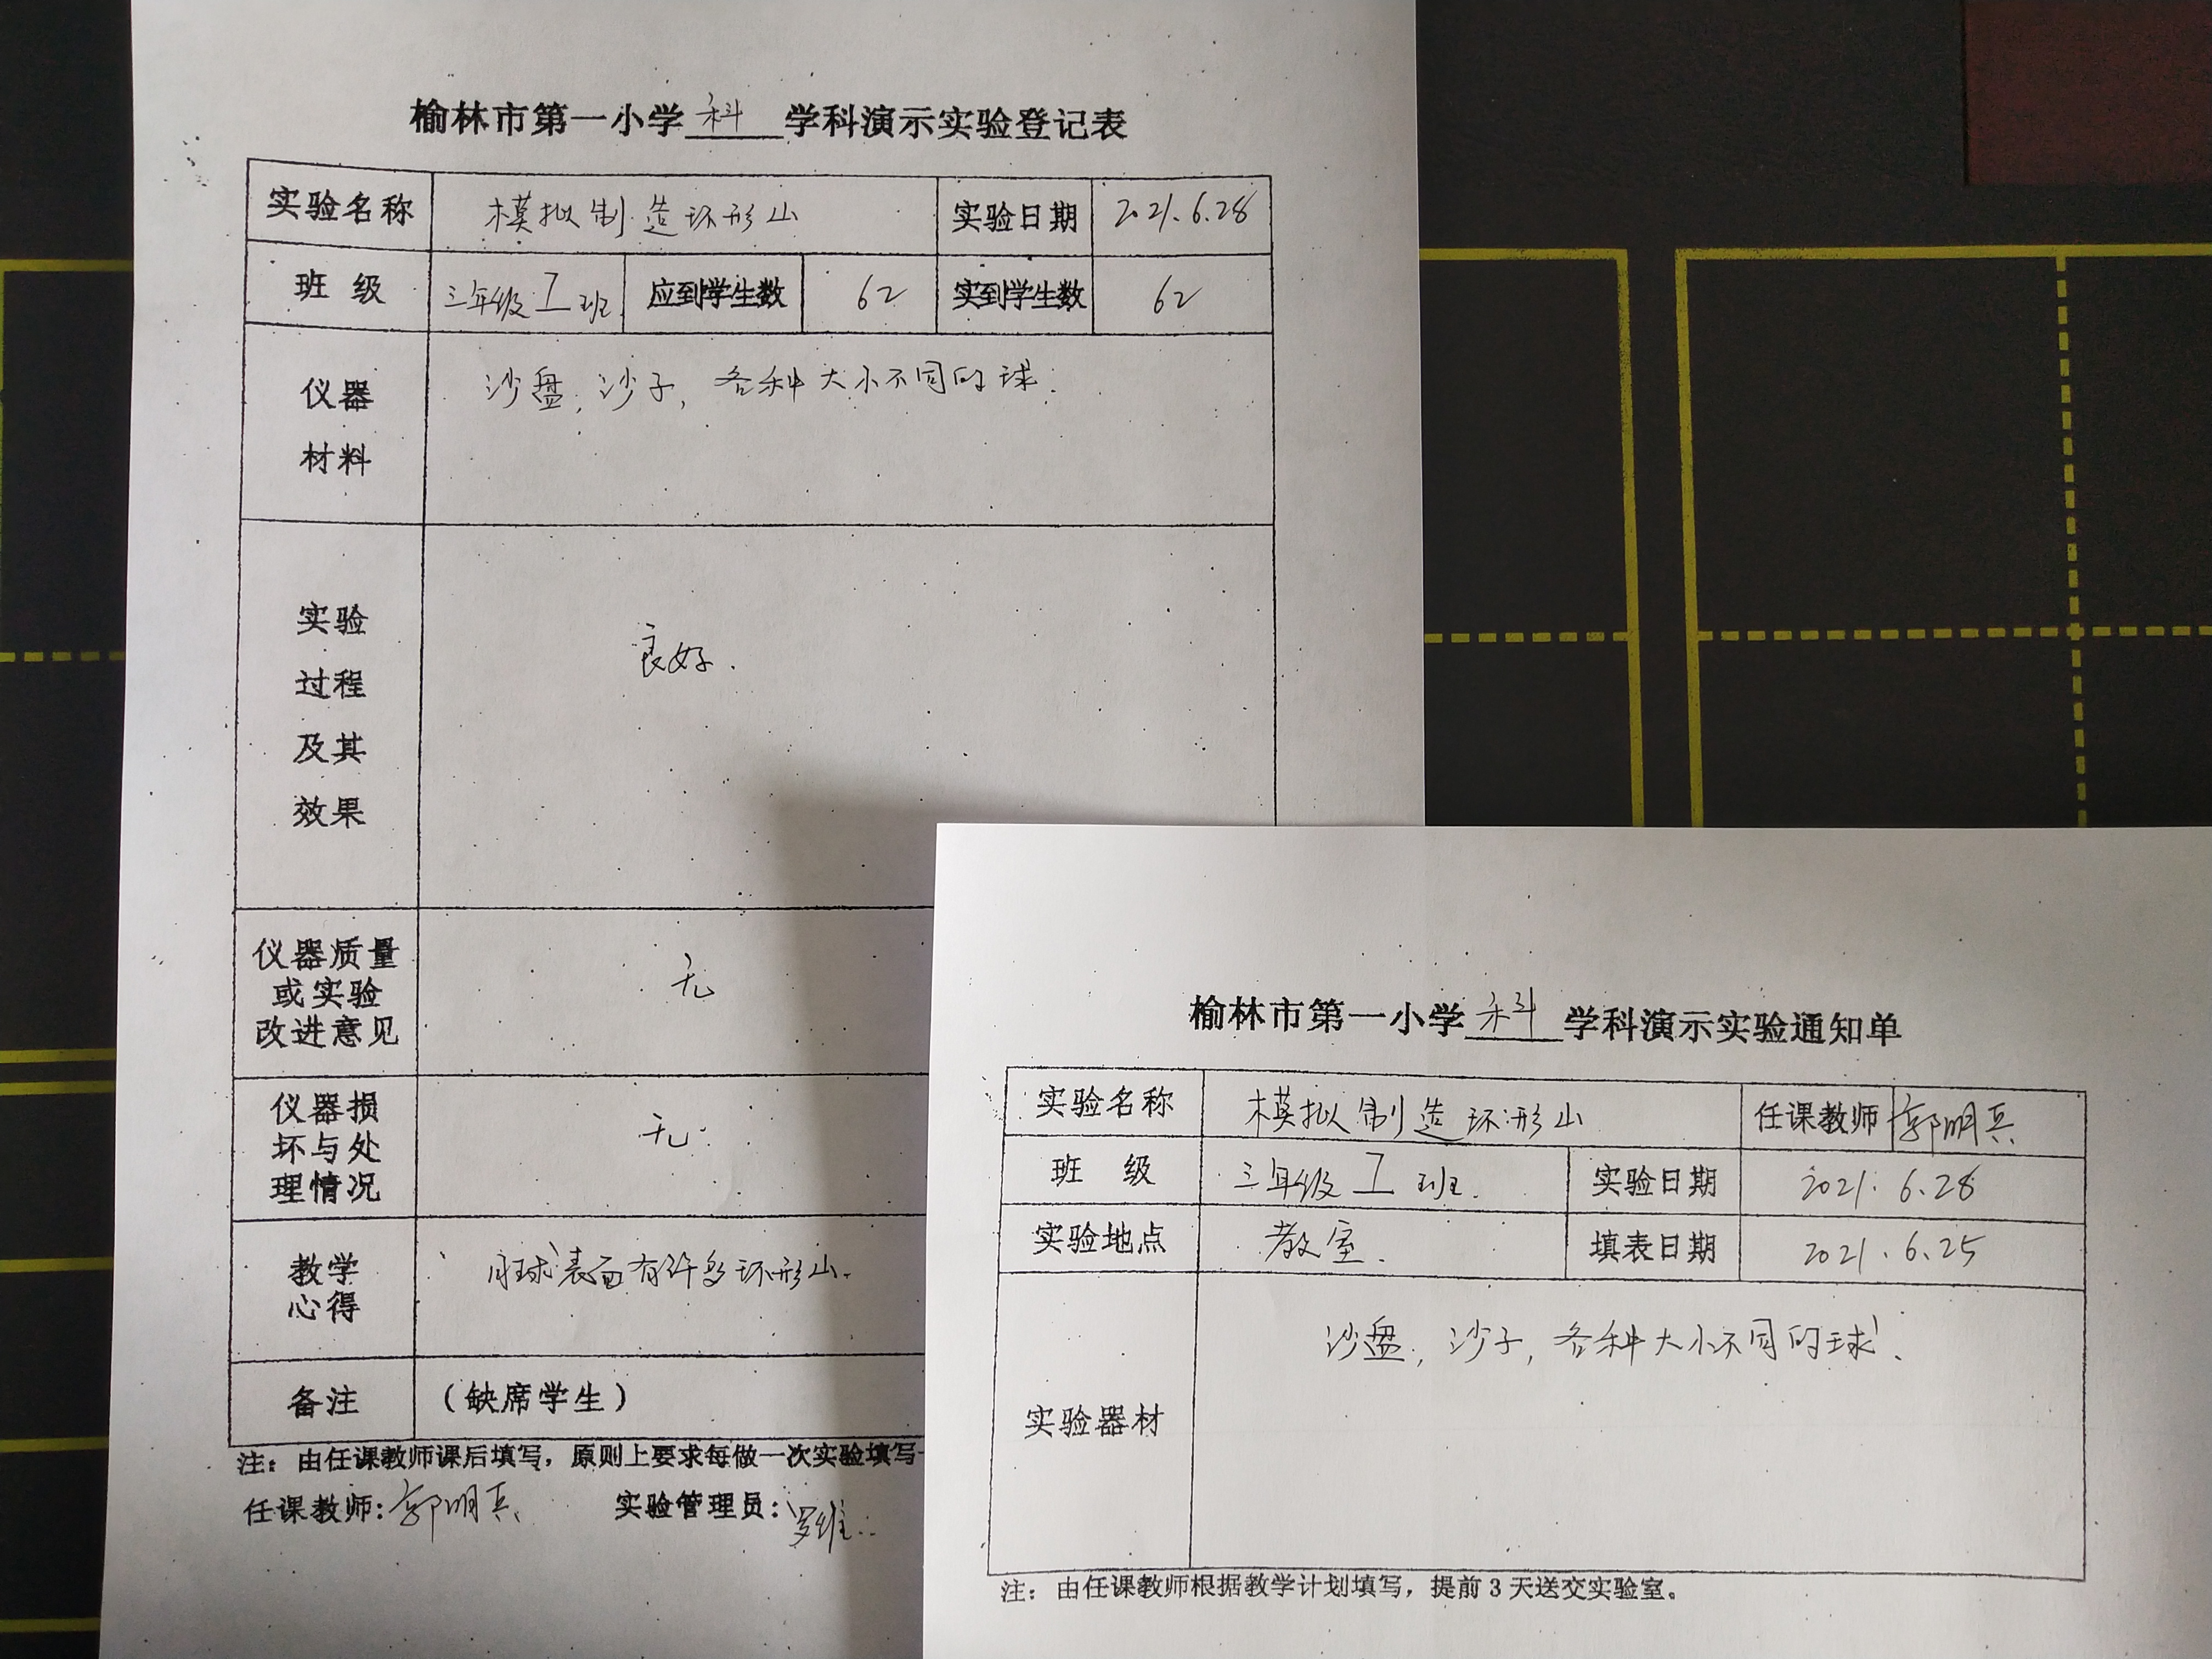 榆林市第一小学科学科演示实验登记表
实验名称 模拟制造环形山 实验日期 2021.6.28
班级 三年级工班 应到学生数 62 实到学生数 62
仪器 沙盘,沙子,各种大小不同的球.
材料
实验
过程 良好.
及其
效果
仪器质量
或实验 无
改进意见
仪器损
坏与处 无.
理情况
教学 月球表面有许多环形山.
心得
备注 (缺席学生)
注:由任课教师课后填写,原则上要求每做一次实验填写
任课教师:郭明兵 实验管理员:罗维
榆林市第一小学科学科演示实验通知单
实验名称 模拟制造环形山 任课教师 郭明兵
班级 三年级工班. 实验日期 2021.6.28
实验地点 教室. 填表日期 2021.6.25
沙盘,沙子,各种大小不同的球.
实验器材
注:由任课教师根据教学计划填写,提前3天送交实验室。